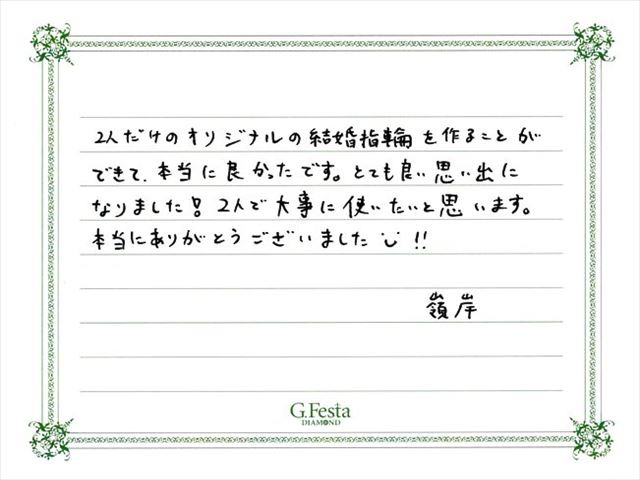 2人だけのオリジナルの結婚指輪を作ることが
できて、本当に良かったです。とても良い思い出に
なりました！2人で大事に使いたいと思います。
本当にありがとうございました!!
嶺岸
G.Festa
DIAMOND